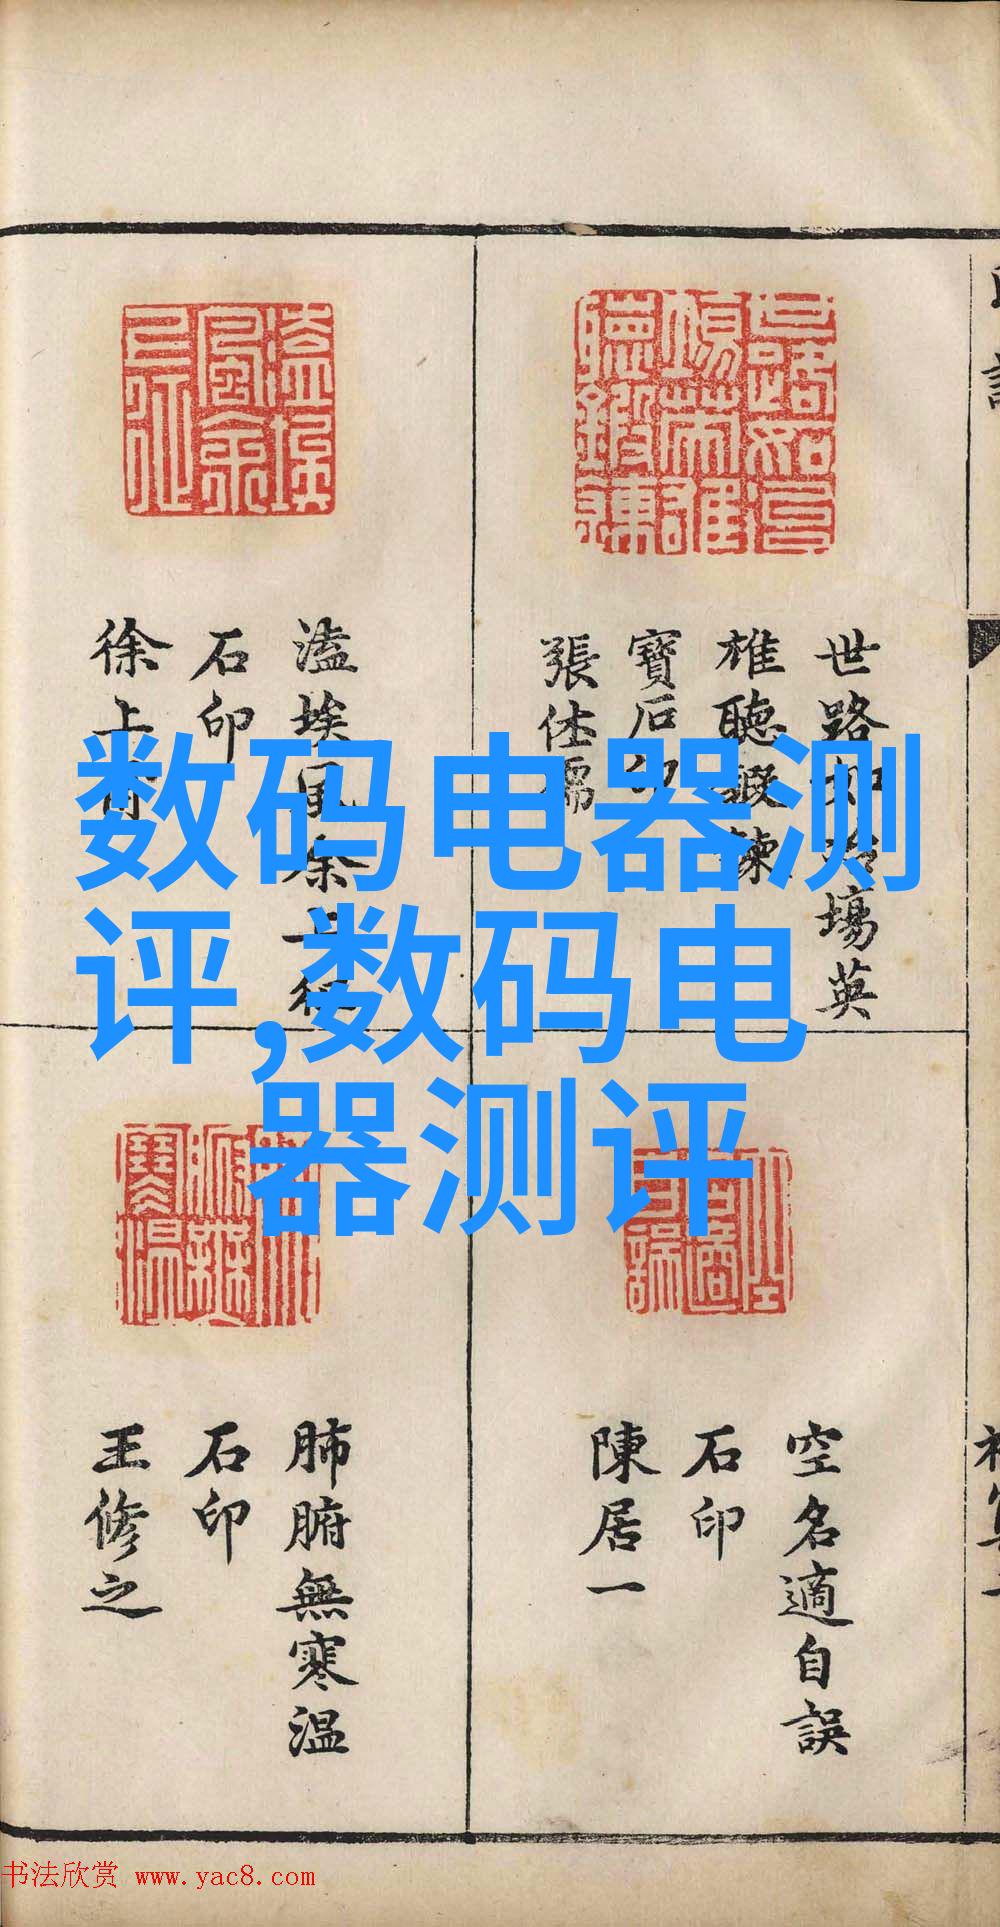 数码电器测
评,数码电
器测评
世路如冶塲英
雄聽鍛鍊
寶石印
張仕儒
溘埃風余上征
石印
徐上
空名適自誤
石印
陳居一
肺腑無寒温
石印
王修之
书法欣赏 www.yac8.com